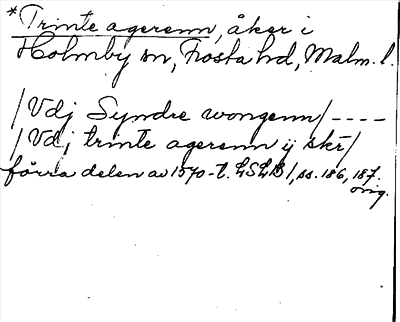 *Trinte agerenn, åker i
Holmby sn, Frosta hd, Malm. l.
/Vdj Syndre wongenn/ ----
/Vdj trinte agerenn ij skr/
förra delen av 1570-t. LSLB 1, ss. 186, 187.
orig.